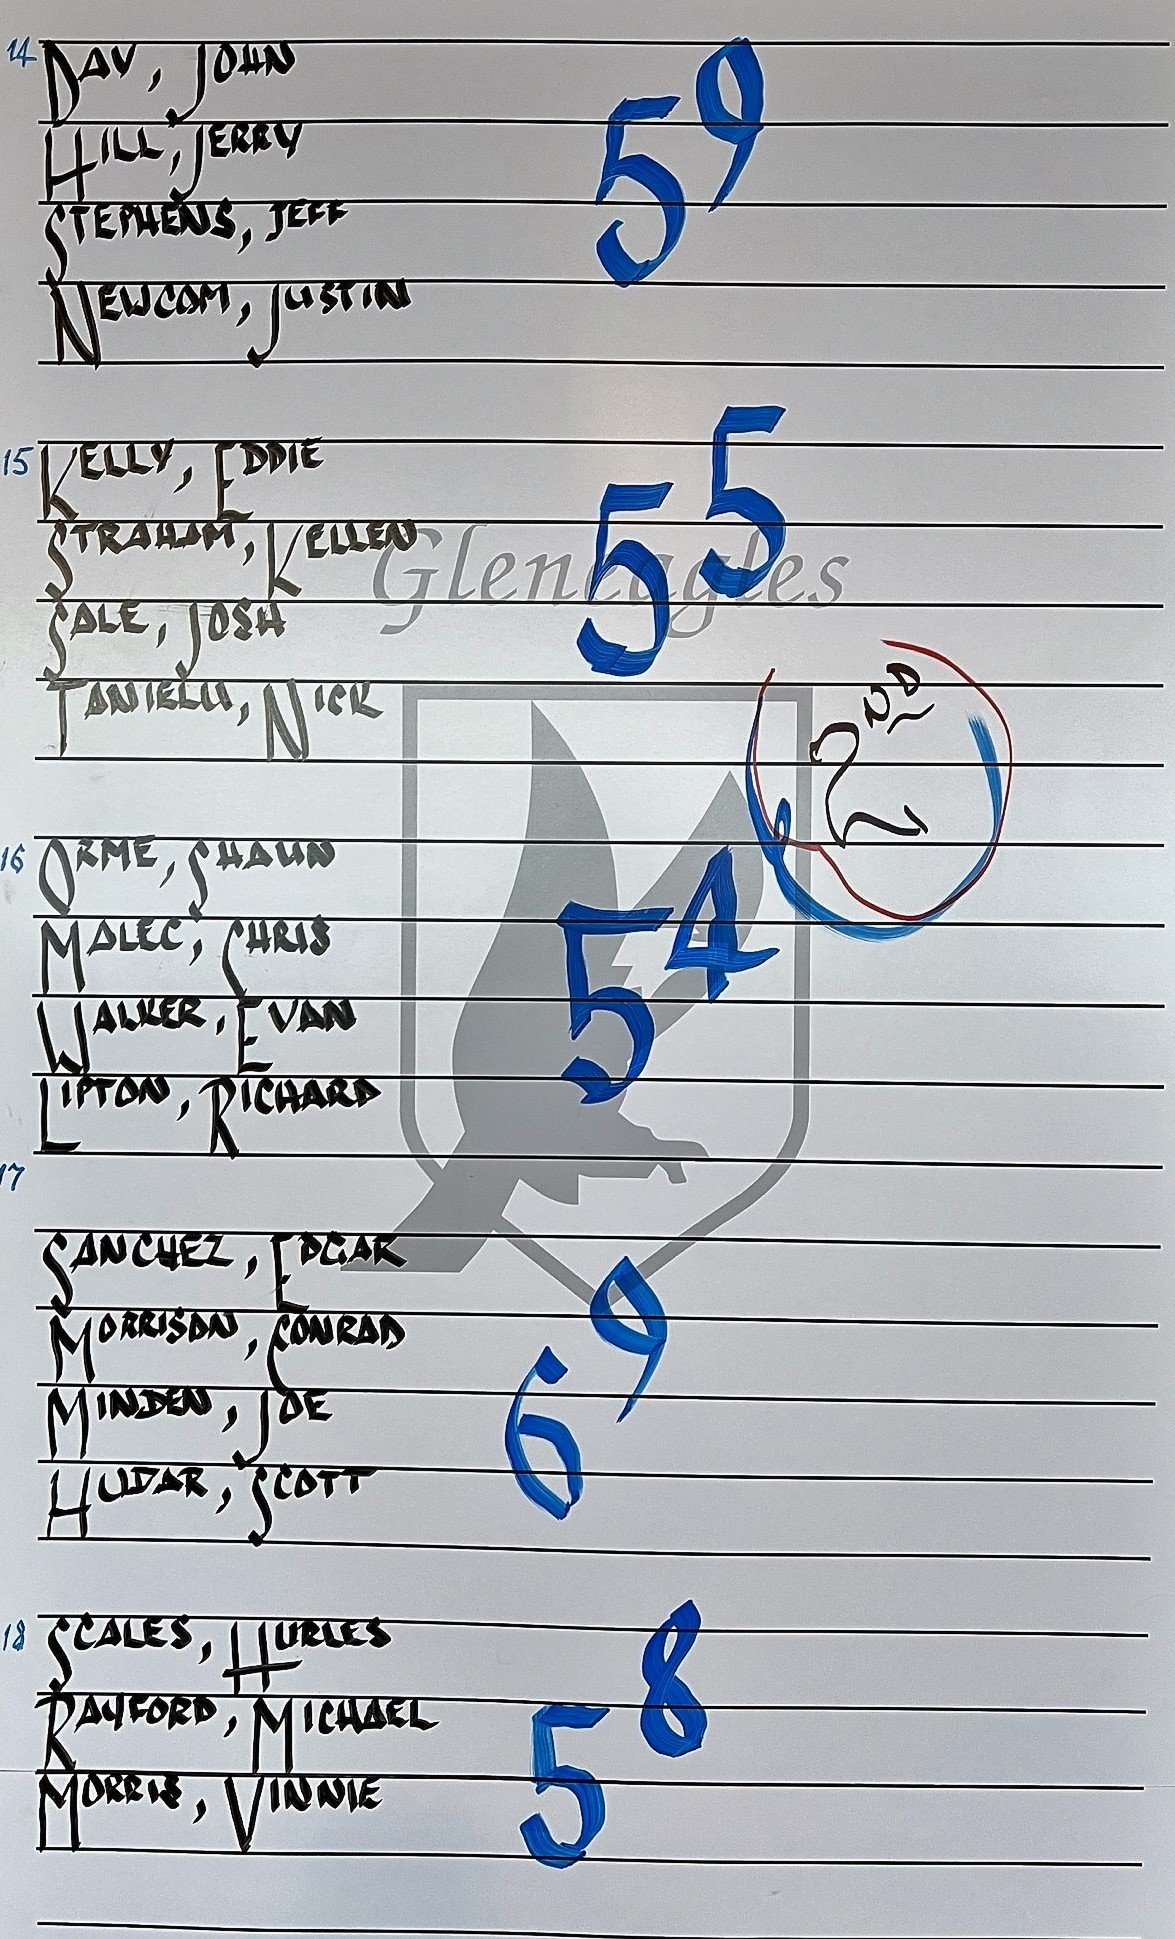 14 DAV, JOHN
HILL, JERRY
59
STEPHENS, JEFF
NEWCOM, JUSTIN
15 KELLY, EDDIE
STRAHAM, KELLEN
55
Gleneagles
SALE, JOSH
TANIELU, NICK
2ND
16 ORME, SHAUN
MALEC, CHRIS
54
WALKER, EVAN
LIPTON, RICHARD
17
SANCHEZ, EDGAR
MORRISON, CONRAD
69
MINDEN, JOE
HUDAR, SCOTT
18 SCALES, HURLES
RAYFORD, MICHAEL
58
MORRIS, VINNIE